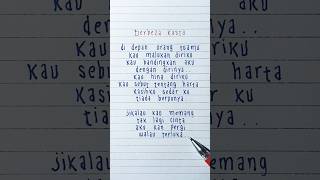 Berbeza Kasta
di depan orang tuamu
kau malukan diriku
kau bandingkan aku
dengan dirinya..
kau hina diriku
kau sebut tentang harta
kasihku sedar ku
tiada berpunya
jikalau kau memang
tak lagi cinta
aku kan pergi
walau terluka..
KAU
KAU sebu
harta
tia
jikalau
memang